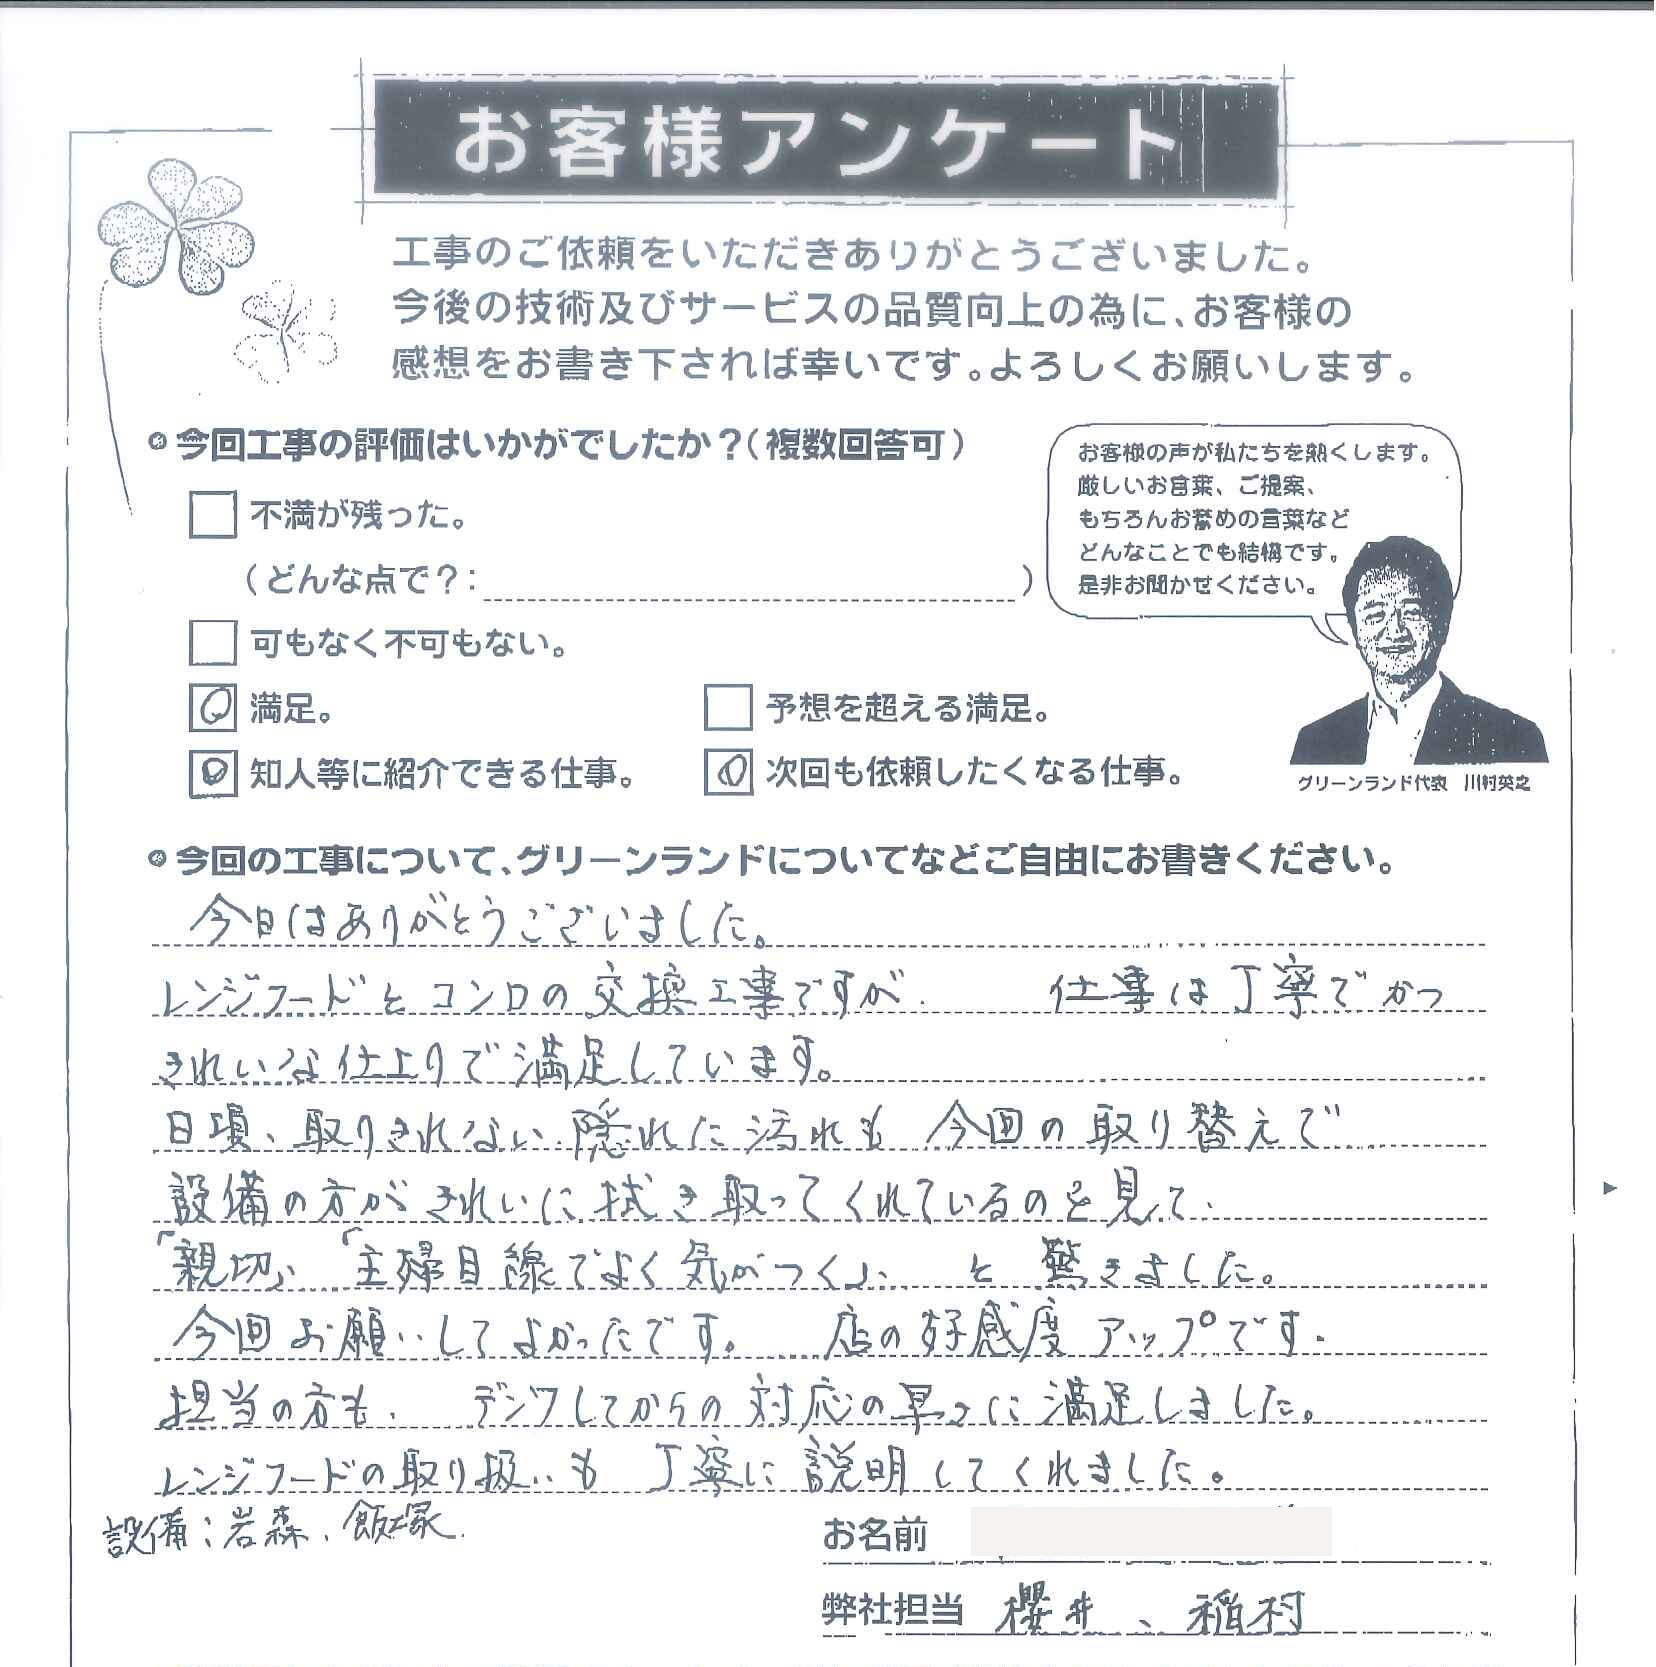 お客様アンケート
工事のご依頼をいただきありがとうございました。
今後の技術及びサービスの品質向上の為に、お客様の
感想をお書き下されば幸いです。よろしくお願いします。
今回工事の評価はいかがでしたか？（複数回答可）
不満が残った。
（どんな点で？：　　　）
可もなく不可もない。
満足。
予想を超える満足。
知人等に紹介できる仕事。
次回も依頼したくなる仕事。
お客様の声が私たちを熱くします。
厳しいお言葉、ご提案、
もちろんお誉めの言葉など
どんなことでも結構です。
是非お聞かせください。
グリーンランド代表　川村英之
今回の工事について、グリーンランドについてなどご自由にお書きください。
今日はありがとうございました。
レンジフードとコンロの交換工事ですが、仕事は丁寧でかつ
きれいな仕上りで満足しています。
日頃、取りきれない隠れた汚れも今回の取り替えで
設備の方がきれいに拭き取ってくれているのを見て、
「親切」「主婦目線でよく気がつく」、と驚きました。
今回お願いしてよかったです。店の好感度アップです。
担当の方も、デンワしてからの対応の早さに満足しました。
レンジフードの取り扱いも丁寧に説明してくれました。
設備：岩森、飯塚
お名前
弊社担当　櫻井、稲村